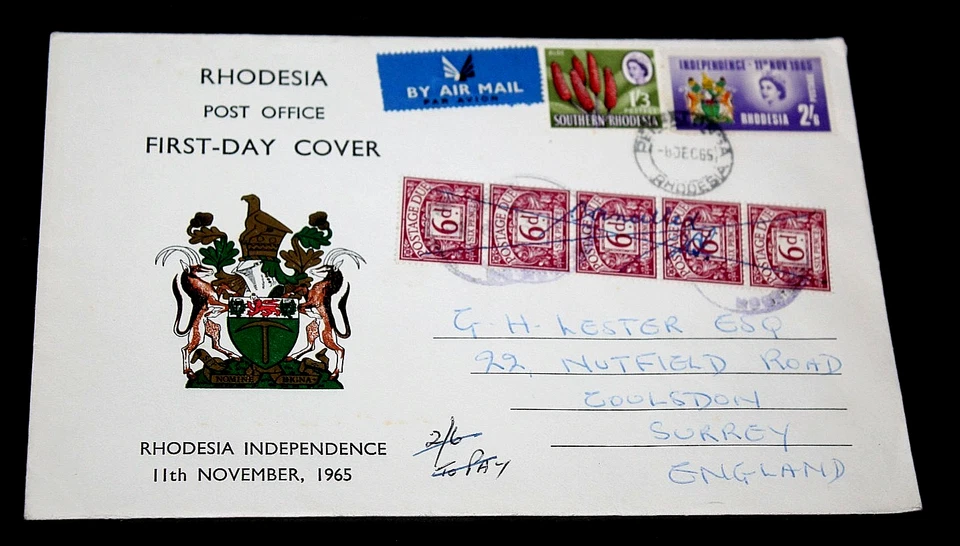 RHODESIA
POST OFFICE
FIRST-DAY COVER
BY AIR MAIL
PAR AVION
ALOE
1/3
POSTAGE
SOUTHERN RHODESIA
INDEPENDENCE - 11TH NOV 1965
POSTAGE
RHODESIA 2/6
-6 DEC 65
RHODESIA
POSTAGE DUE 6D
POSTAGE DUE 6D
POSTAGE DUE 6D
POSTAGE DUE 6D
POSTAGE DUE 6D
Cancelled
G. H. LESTER ESQ
22, NUTFIELD ROAD
COULSDON
SURREY
ENGLAND
2/6
TO PAY
NOMINE DIGNA
RHODESIA INDEPENDENCE
11th NOVEMBER, 1965